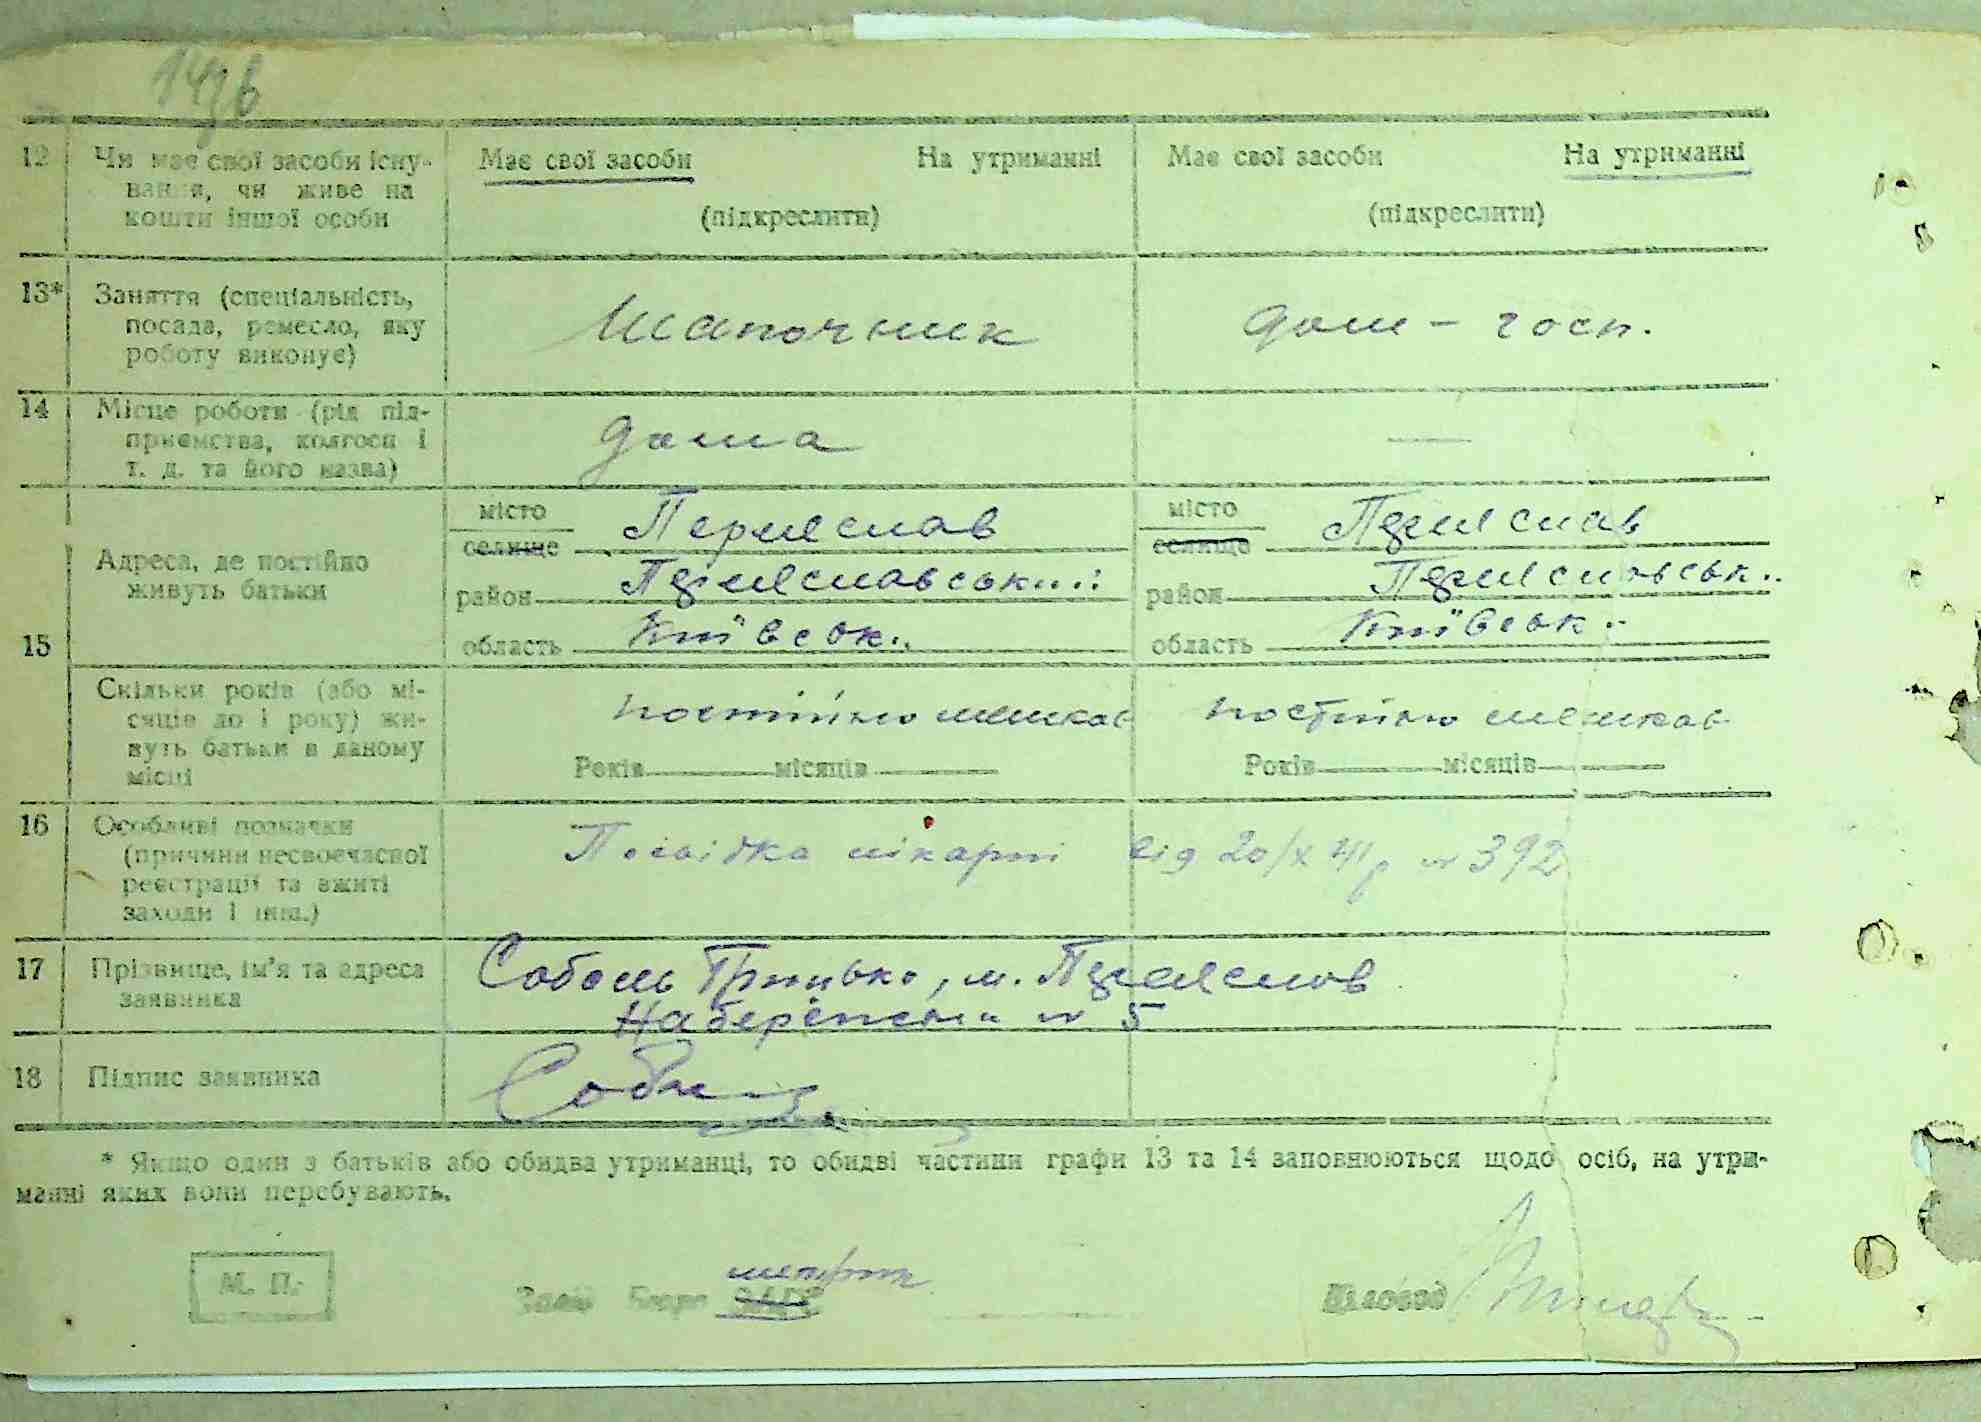 14зв
12 Чи має свої засоби існу- Має свої засоби На утриманні Має свої засоби На утриманні
вання, чи живе на
кошти іншої особи (підкреслити) (підкреслити)
13* Заняття (спеціальність,
посада, ремесло, яку Шапочник дом - госп.
роботу виконує)
14 Місце роботи (рід під-
приємства, колгосп і дома —
т. д. та його назва)
15 Адреса, де постійно
живуть батьки
місто Переяслав місто Переяслав
селище селище
район Переяславський район Переяславськ..
область Київськ.. область Київськ..
Скільки років (або мі-
сяців до 1 року) жи- постійно мешкав постійно мешкав
вуть батьки в даному
місці Років місяців Років місяців
16 Особливі позначки
(причини несвоєчасної Посвідка лікарні від 20/X 41р № 392
реєстрації та вжиті
заходи і інш.)
17 Прізвище, ім'я та адреса Соболь Грицько, м. Переяслов
заявника Набережна № 5
18 Підпис заявника
* Якщо один з батьків або обидва утриманці, то обидві частини графи 13 та 14 заповнюються щодо осіб, на утри-
манні яких вони перебувають.
М. П. Зав. Бюро ЗАГС Діловод